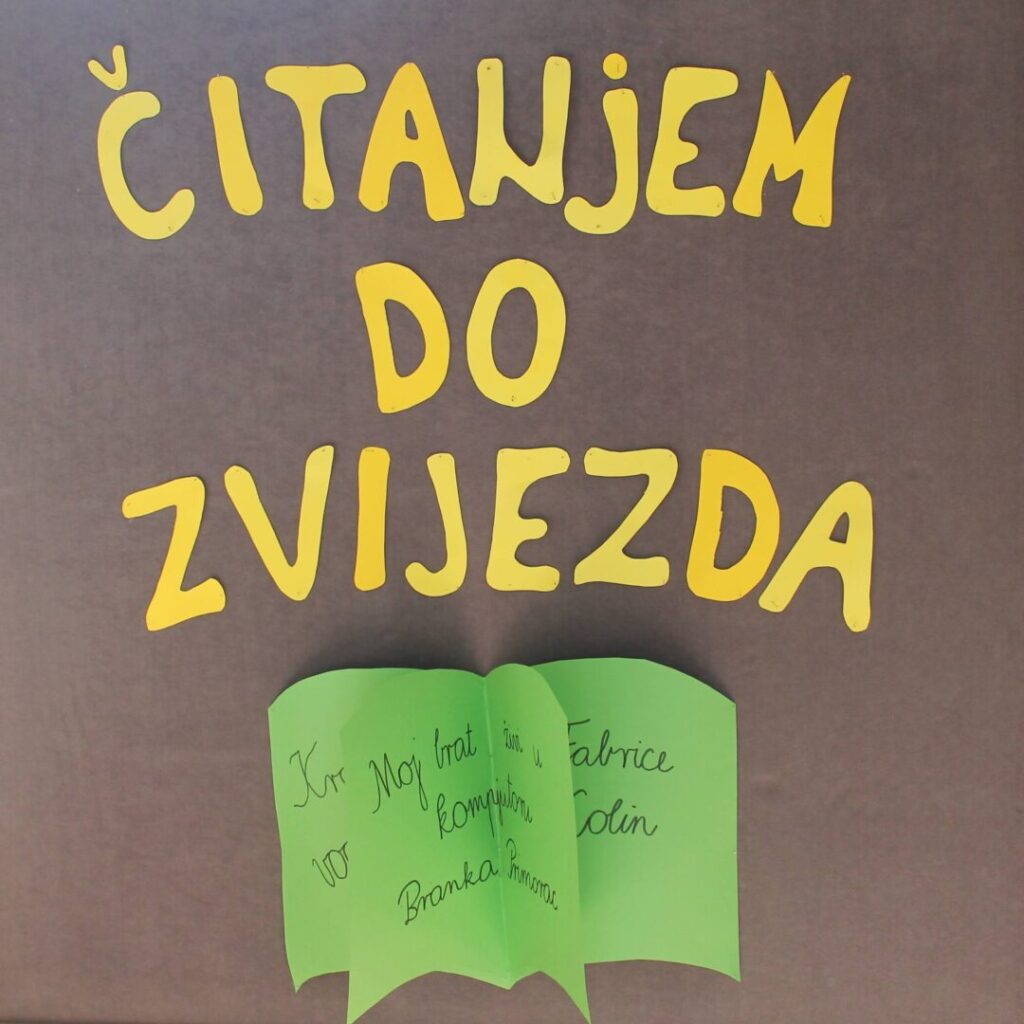 ČITANJEM
DO
ZVIJEZDA
Moj brat živi u
kompjutoru
Branka Primorac
Fabrice
Colin